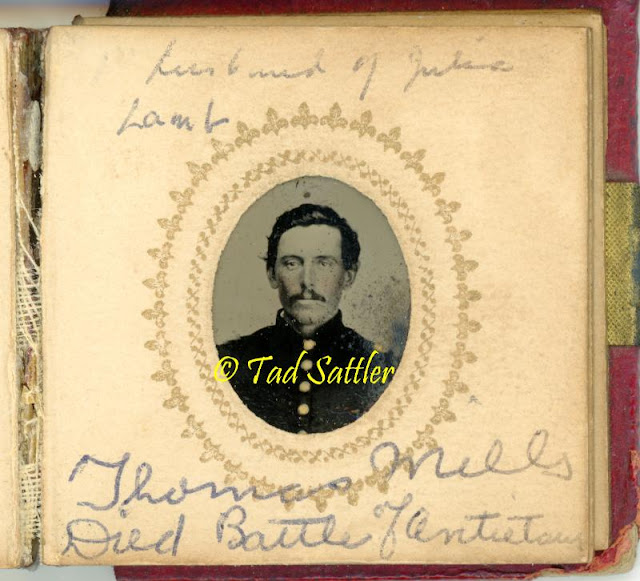 husband of Julia
Lamb
© Tad Sattler
Thomas Mells
Died Battle of Antietam